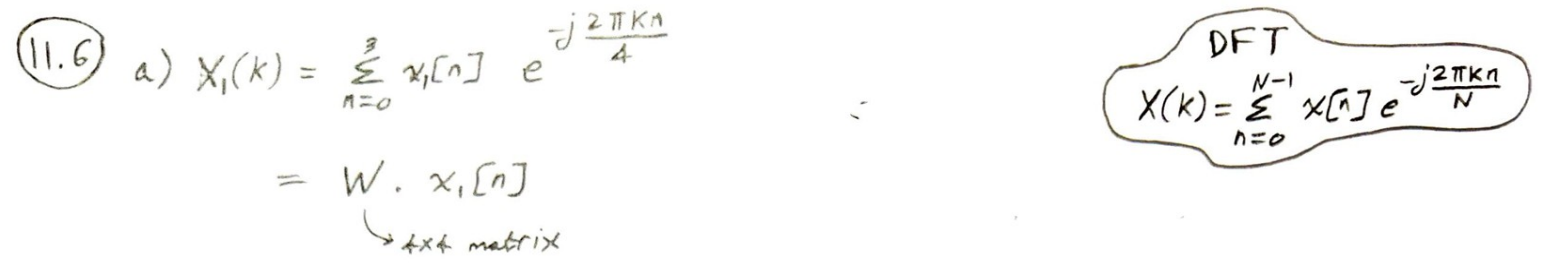 11.6 a) X₁(k) = Σ_{n=0}^{3} x₁[n] e^{-j 2πkn/4}
= W . x₁[n]
↳ 4x4 matrix
DFT
X(k) = Σ_{n=0}^{N-1} x[n] e^{-j 2πkn/N}